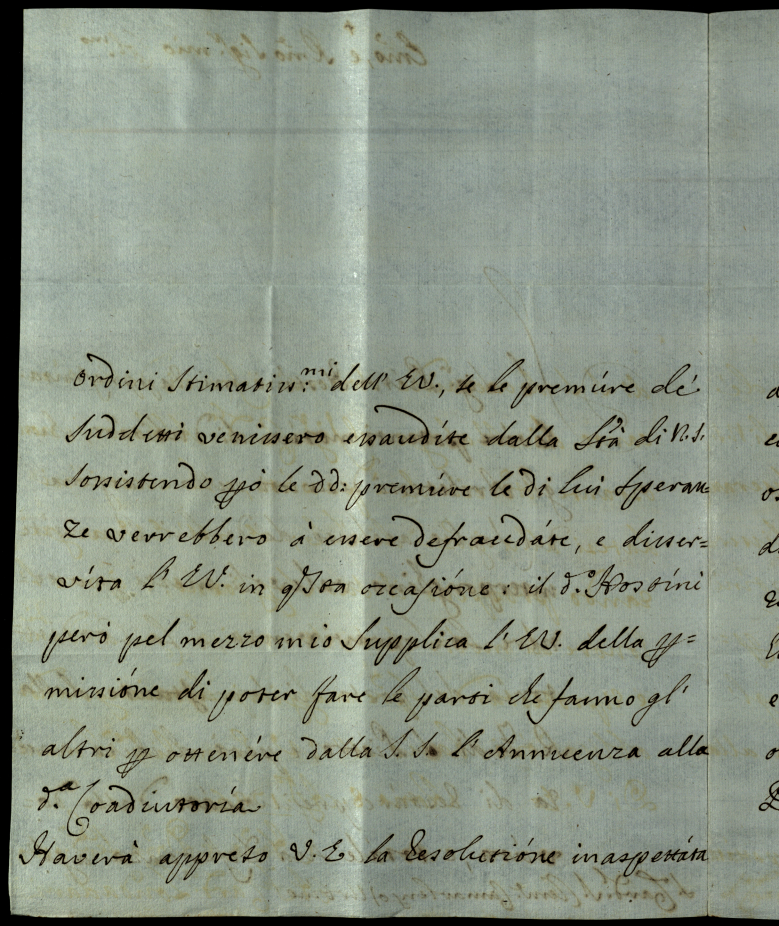 ordini stimatiss:mi dell' EV., se le premúre dé
suddetti venissero essaudíte dalla Stà di N.S.
sorsistendo però le dd: premúre le di lui speran=
ze verrebbero à essere defraudáte, e disser=
víta l'EV. in qsta occasióne: il d.o Rostíni
però pel mezzo mio supplica l'EV. della p=
missióne di poter fare le parti che fanno gl'
altri p ottenére dalla S.S. l'Annuenza alla
d.a Coadiutoría
Haverà appreso V.E. la resolutióne inaspettáta